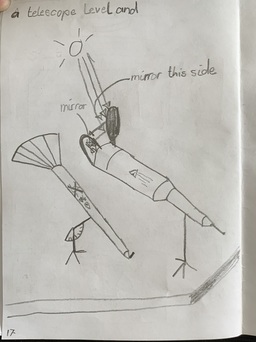 a telescope Level and
mirror this side
mirror
17